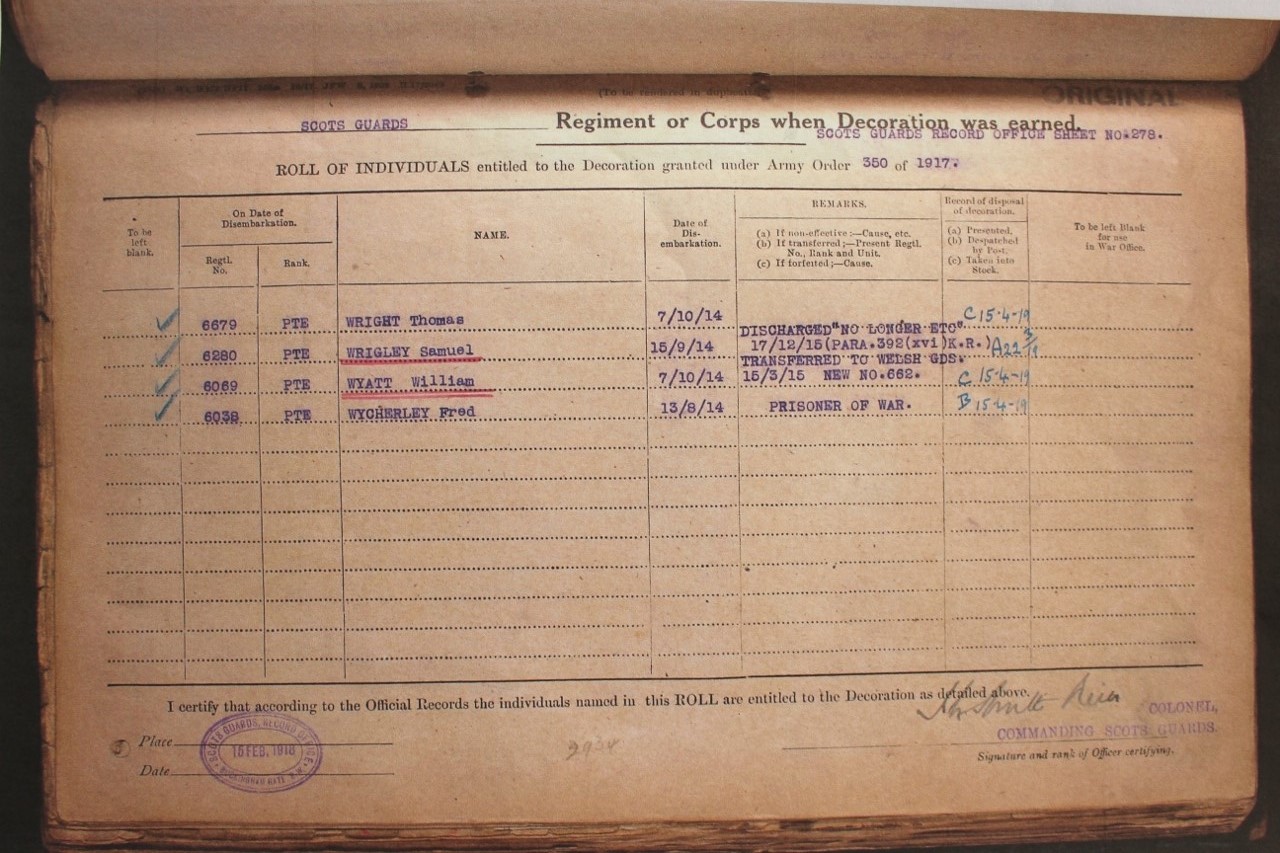 (To be rendered in duplicate
ORIGINAL
SCOTS GUARDS Regiment or Corps when Decoration was earned.
SCOTS GUARDS RECORD OFFICE SHEET NO.278.
ROLL OF INDIVIDUALS entitled to the Decoration granted under Army Order 350 of 1917.
To be left blank.
On Date of Disembarkation.
Regtl. No.
Rank.
NAME.
Date of Dis-embarkation.
REMARKS.
(a) If non-effective :—Cause, etc.
(b) If transferred ;—Present Regtl. No., Rank and Unit.
(c) If forfeited ;—Cause.
Record of disposal of decoration.
(a) Presented.
(b) Despatched by Post.
(c) Taken into Stock.
To be left Blank for use in War Office.
6679 PTE WRIGHT Thomas 7/10/14 C 15-4-19
DISCHARGED "NO LONGER ETC"
6280 PTE WRIGLEY Samuel 15/9/14 17/12/15(PARA.392(xvi)K.R.) A 22 3/19
TRANSFERRED TO WELSH GDS.
6069 PTE WYATT William 7/10/14 15/3/15 NEW NO.662. C 15-4-19
6038 PTE WYCHERLEY Fred 13/8/14 PRISONER OF WAR. B 15-4-19
I certify that according to the Official Records the individuals named in this ROLL are entitled to the Decoration as detailed above.
COLONEL,
COMMANDING SCOTS GUARDS.
Signature and rank of Officer certifying.
Place
Date
SCOTS GUARDS, RECORD OFFICE
15 FEB. 1918
2934